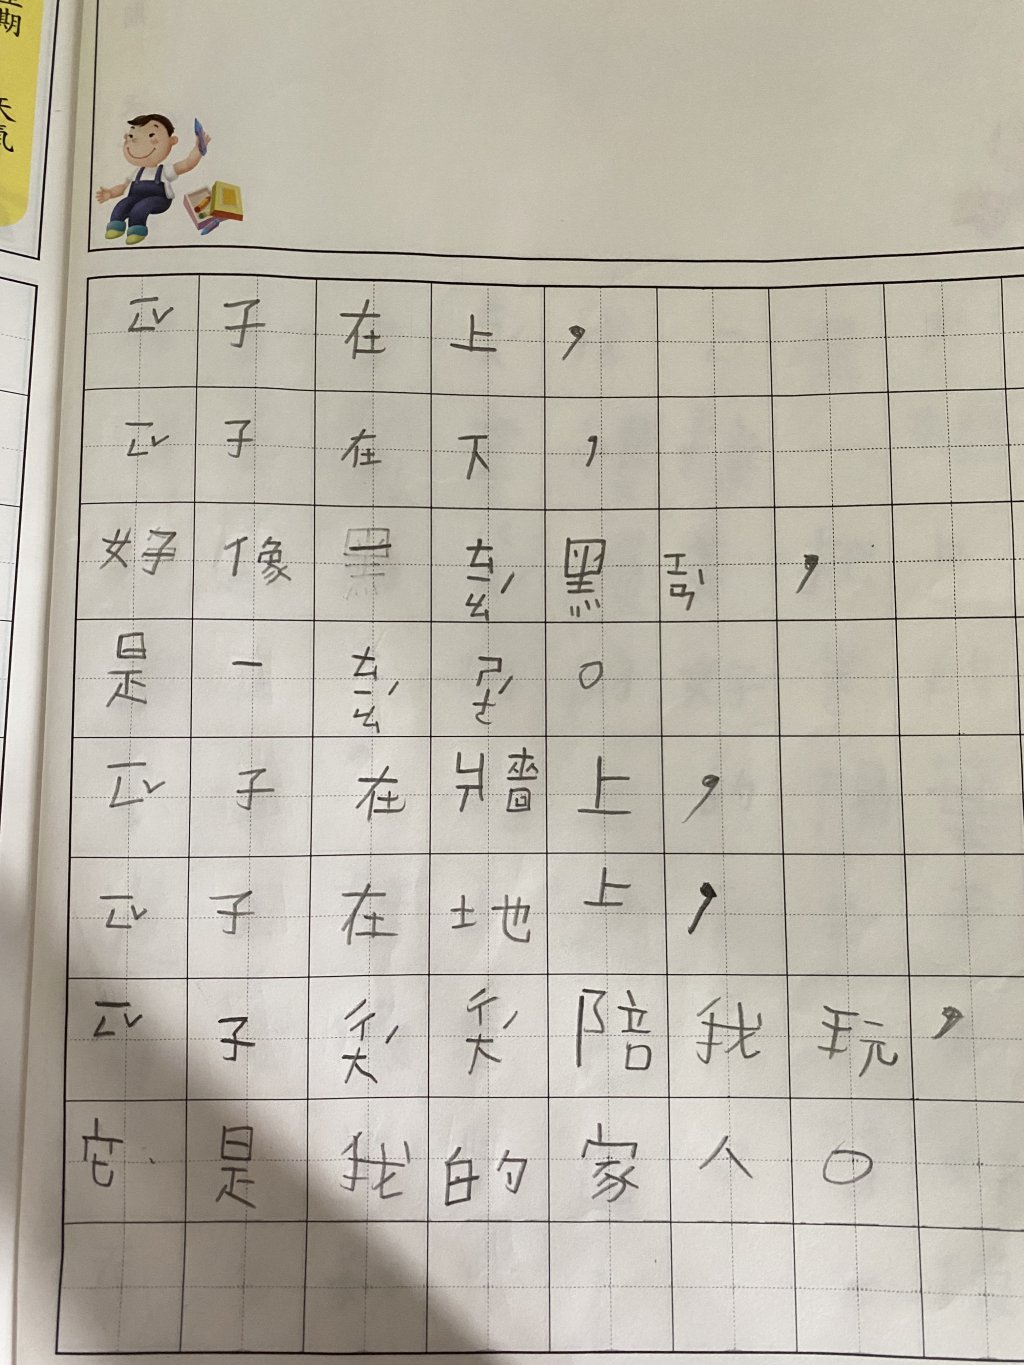 星期 天氣
ㄧㄥˇ子在上，
ㄧㄥˇ子在下，
好像黑ㄊㄧㄠˊ黑，
是一ㄊㄧㄠˊㄕㄜˊ。
ㄧㄥˇ子在牆上，
ㄧㄥˇ子在地上，
ㄧㄥˇ子ㄔㄤˊㄔㄤˊ陪我玩，
它是我的家人。